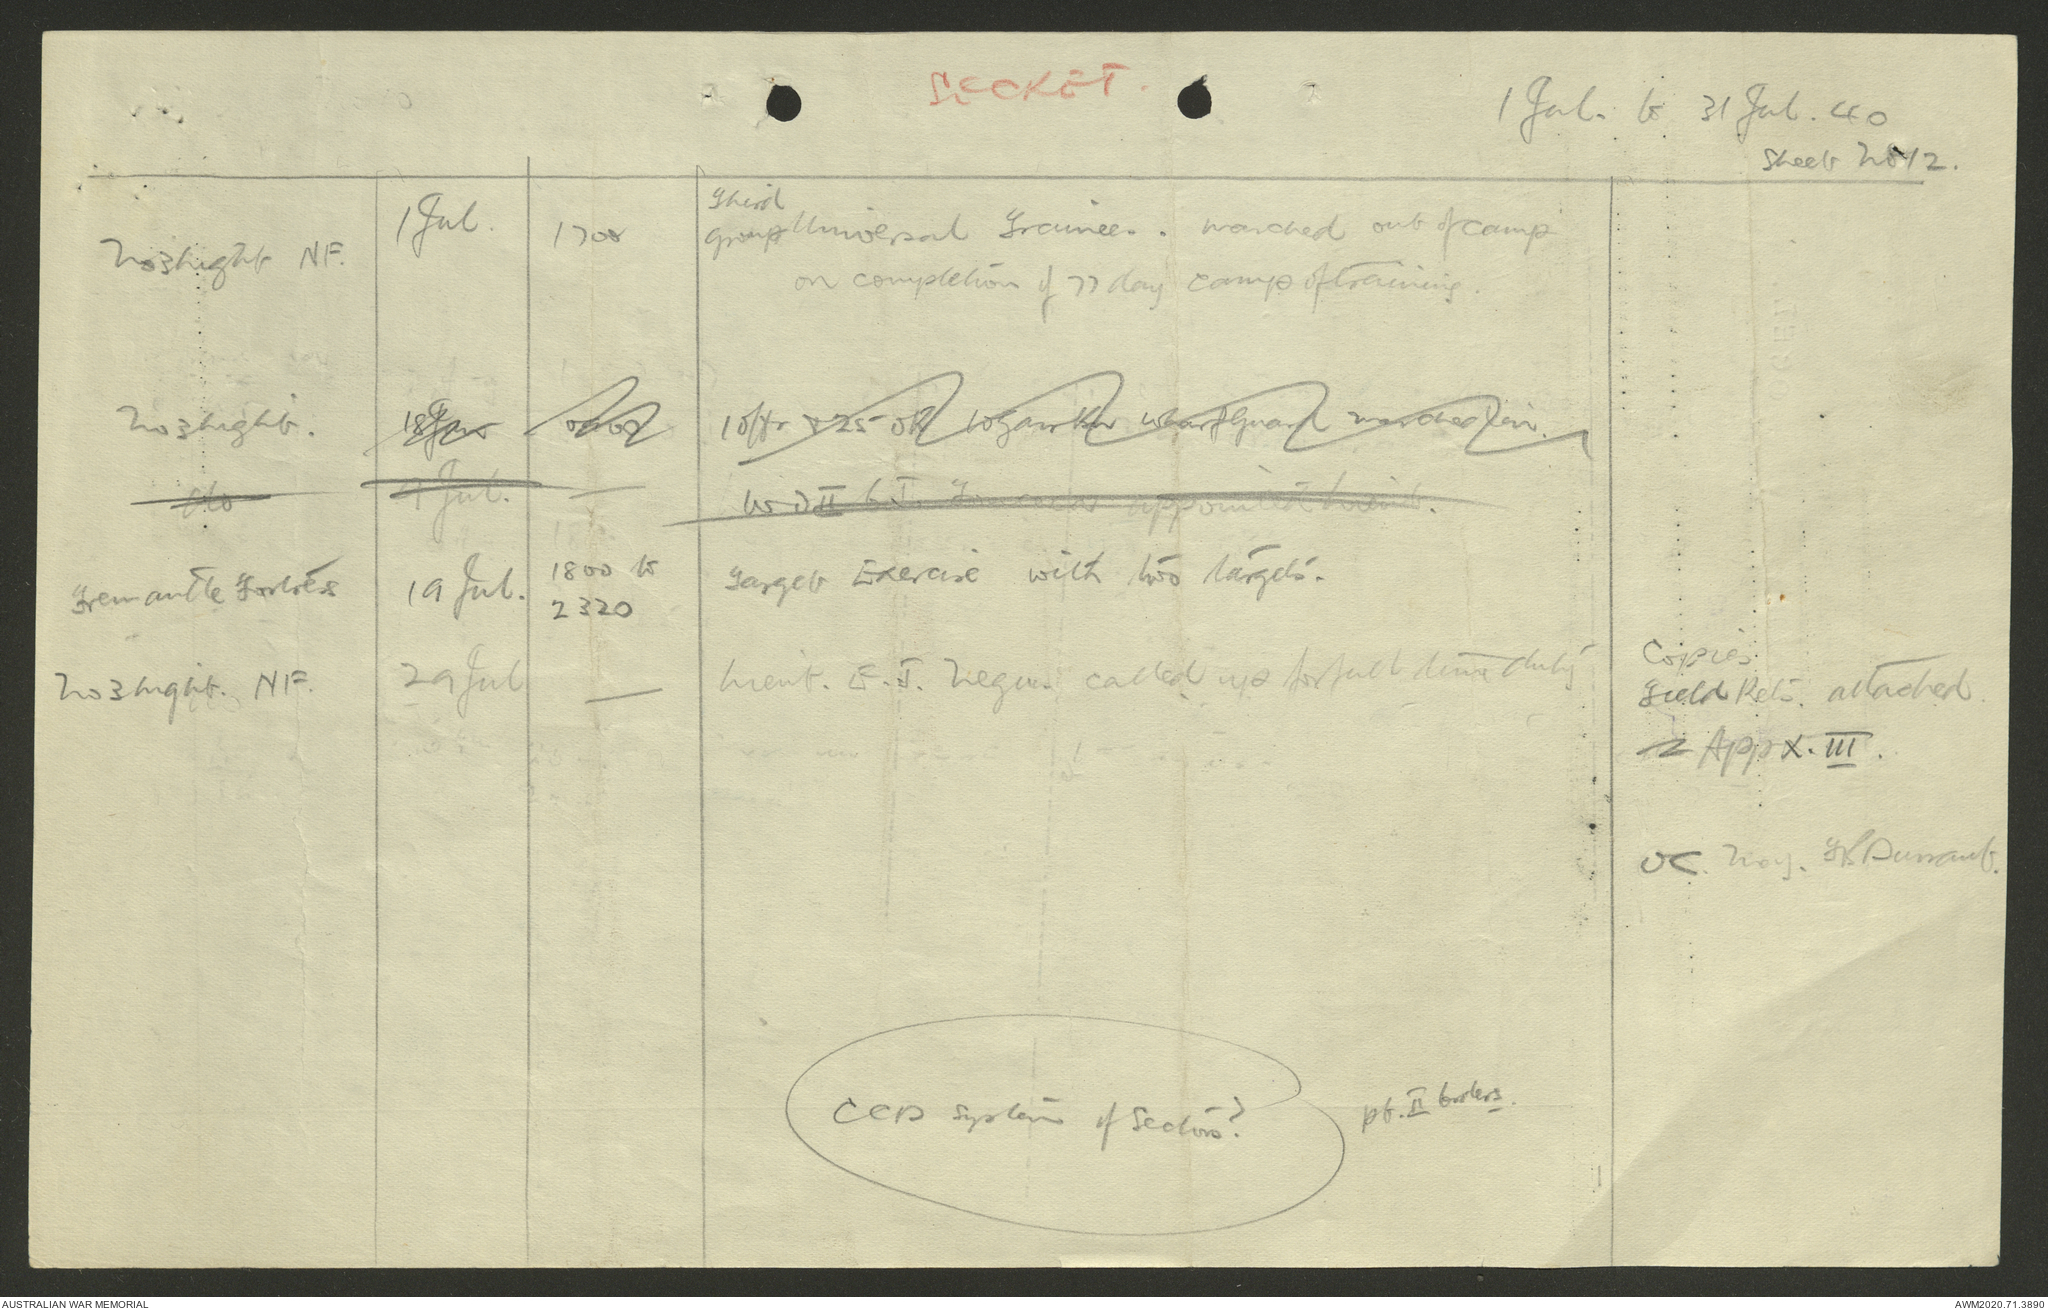 SECRET.
1 Jul. to 31 Jul. 40
Sheet No 12.
No 3 Light NF.
1 Jul.
1700
Third
group Universal Trainees. marched out of camp
on completion of 77 day camp of training.
No 3 Light.
18 Jun
1 Offr & 25 OR to Gawler Wharf Guard marched in.
do
9 Jul.
—
W O II appointed Lieut.
Fremantle Fortress
19 Jul.
1800 to
2320
Target Exercise with two targets.
No 3 Light. NF.
29 Jul
—
Lieut. E. J. called up for full time duty
Copies
Field Rets. attached
Appx. III.
OC. Maj. Durrant.
CCD system of Sections?
pt. II orders.
AUSTRALIAN WAR MEMORIAL
AWM2020.71.3890